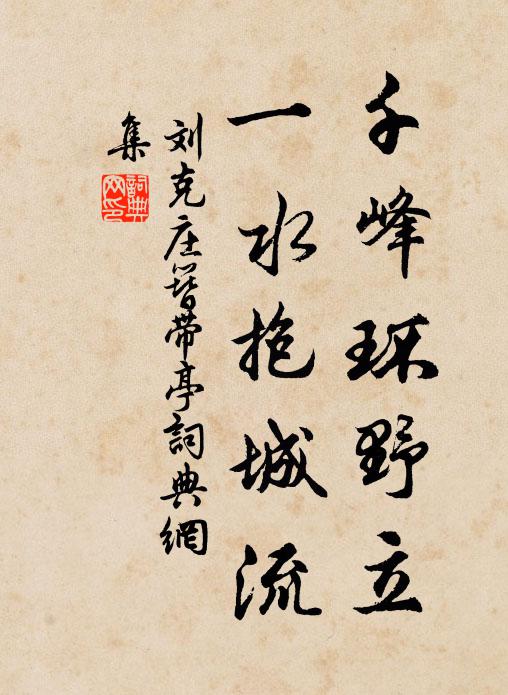 千峰环野立
一水抱城流
刘克庄簪带亭詞典網
集
詞典
网印